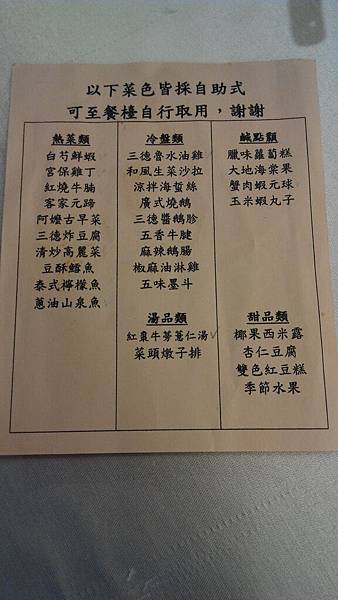 以下菜色皆採自助式
可至餐檯自行取用，謝謝
熱菜類
白芍鮮蝦
宮保雞丁
紅燒牛腩
客家元蹄
阿嬤古早菜
三德炸豆腐
清炒高麗菜
豆酥鱈魚
泰式檸檬魚
蔥油山泉魚
冷盤類
三德魯水油雞
和風生菜沙拉
涼拌海蜇絲
廣式燒鵝
三德醬鵝胗
五香牛腱
麻辣鵝腸
椒麻油淋雞
五味墨斗
湯品類
紅棗牛蒡薏仁湯
菜頭燉子排
鹹點類
臘味蘿蔔糕
大地海棠果
蟹肉蝦元球
玉米蝦丸子
甜品類
椰果西米露
杏仁豆腐
雙色紅豆糕
季節水果